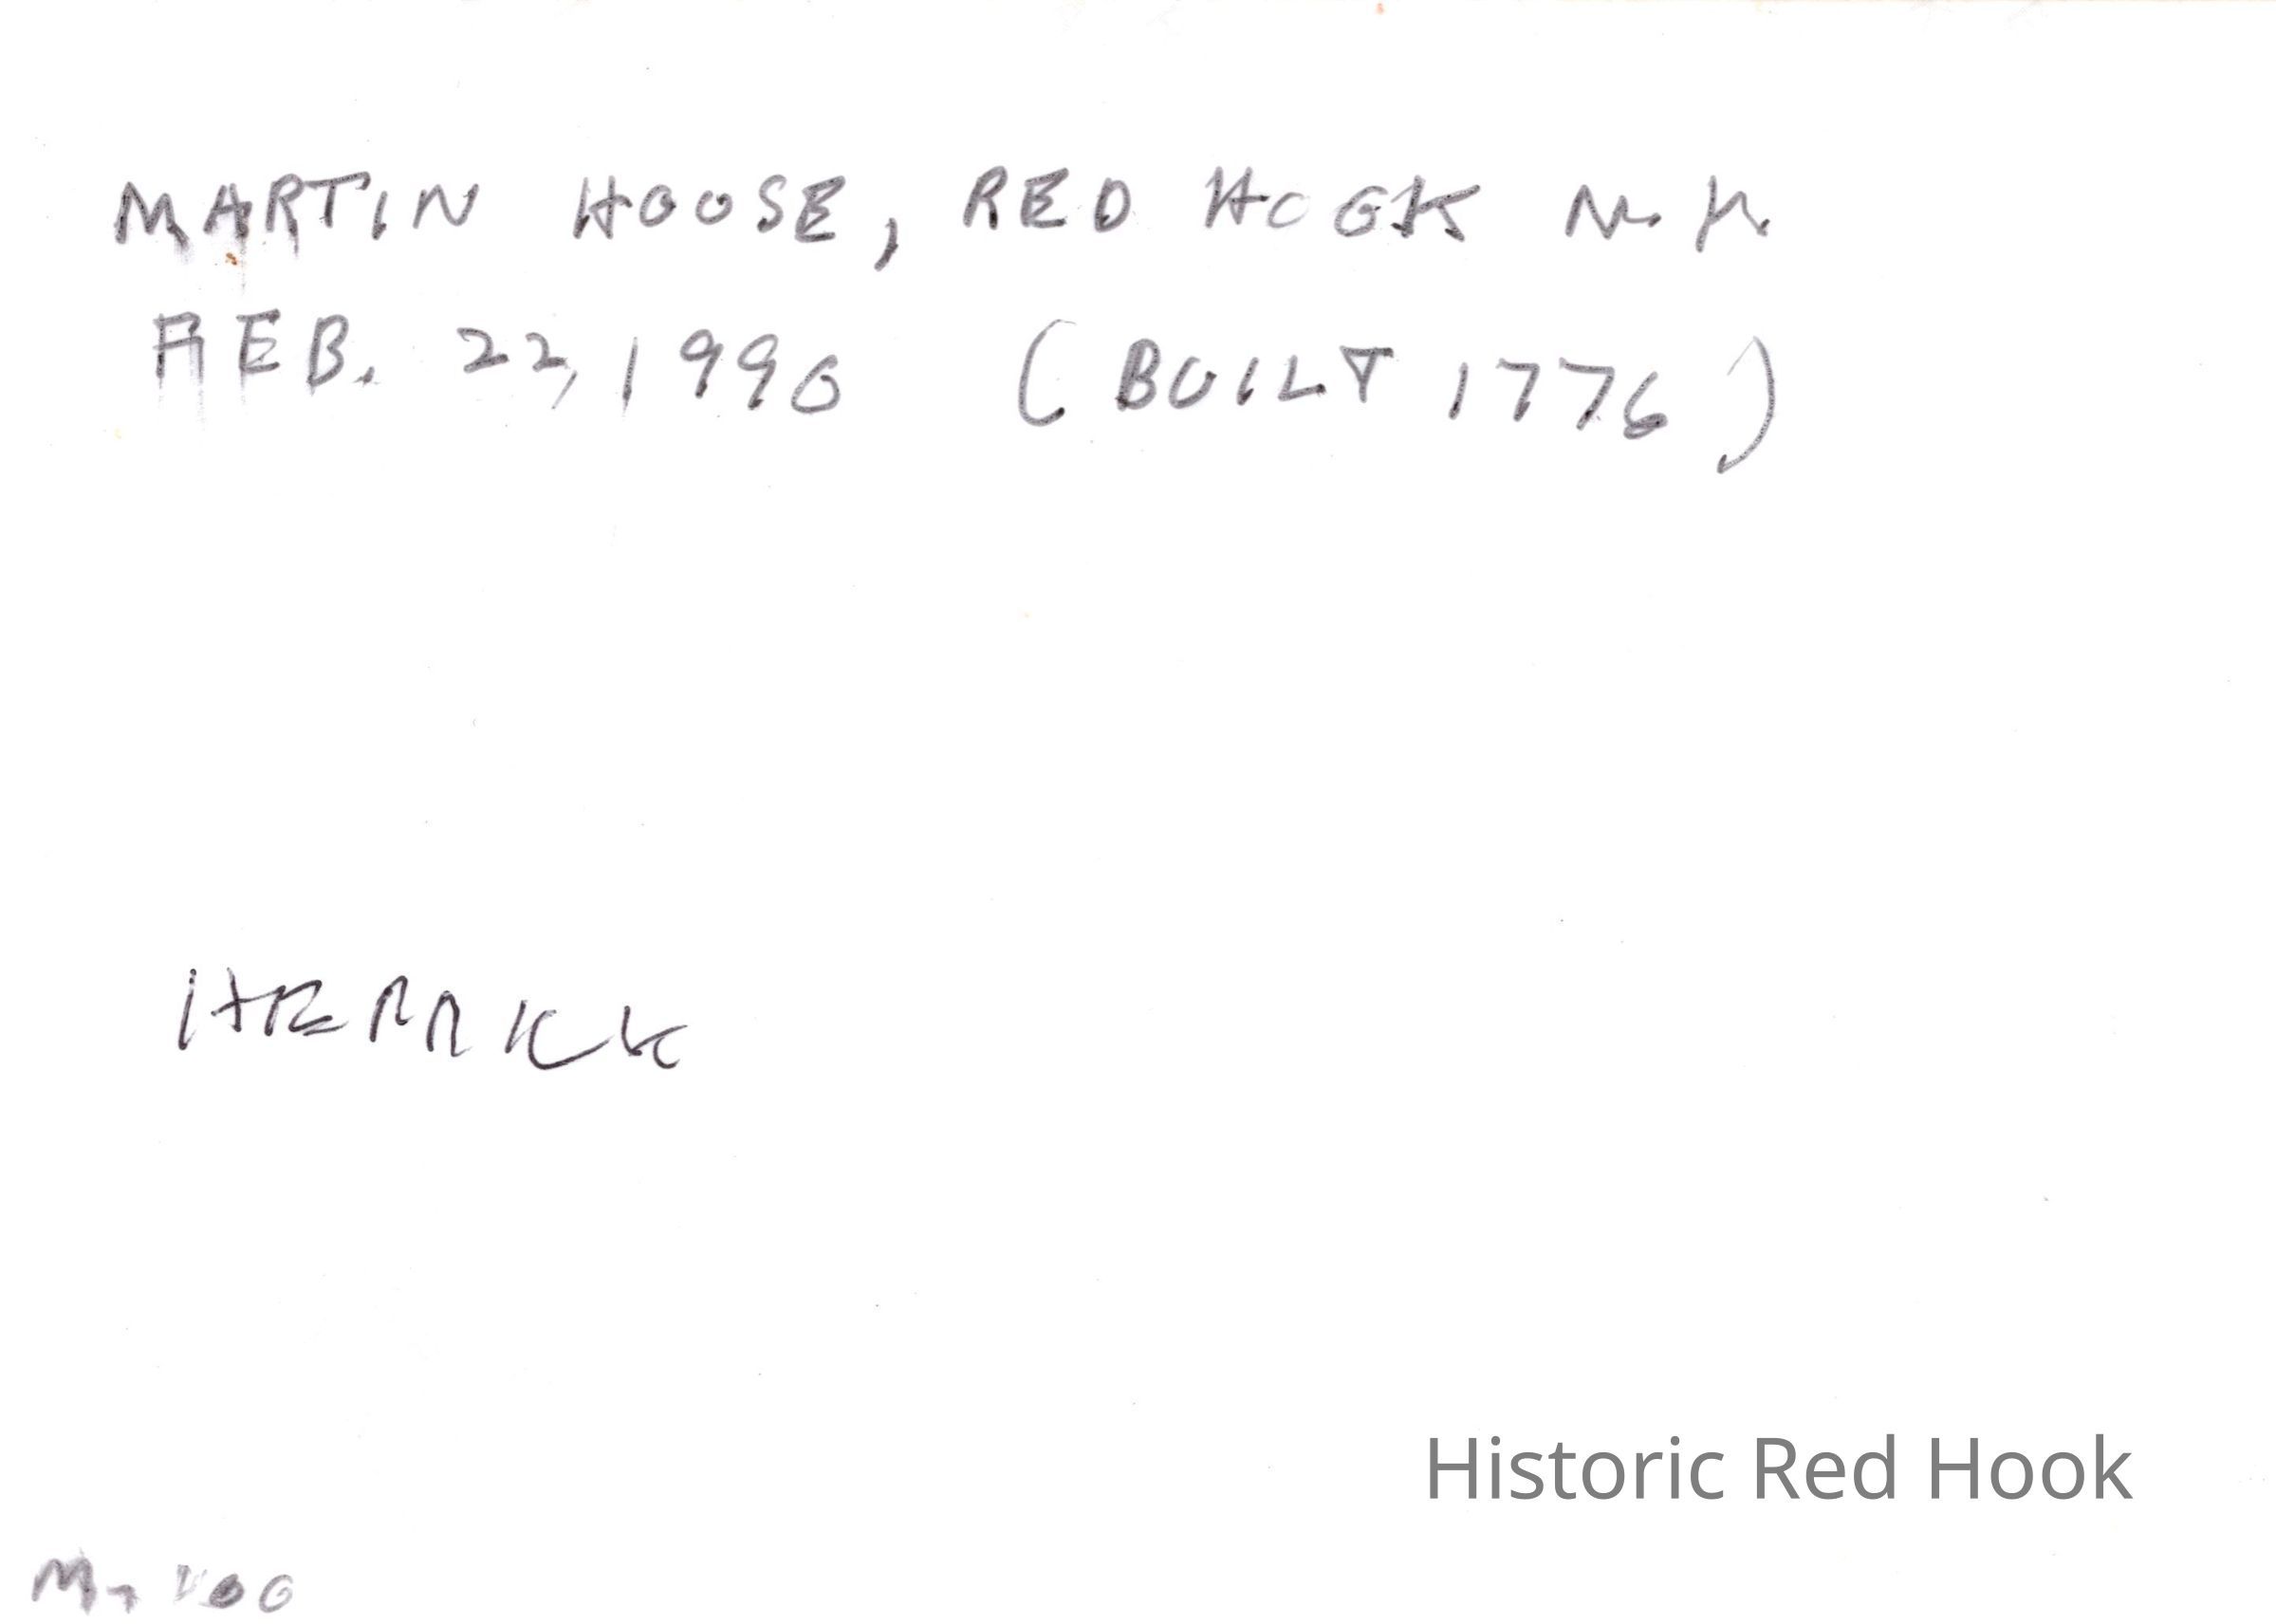 MARTIN HOUSE, RED HOOK N.Y.
FEB. 22, 1990 (BUILT 1776)
HERRICK
Historic Red Hook